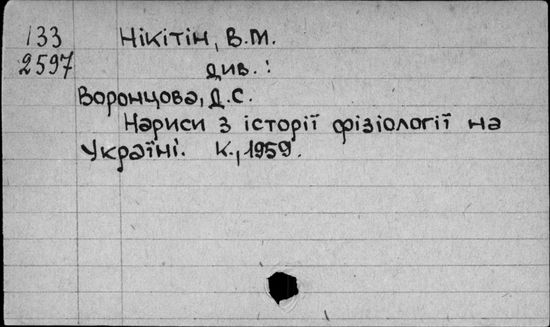 133
2597
Нікітін, В.М.
див.:
Воронцова, Д.С.
Нариси з історії фізіології на
Україні. К., 1959.